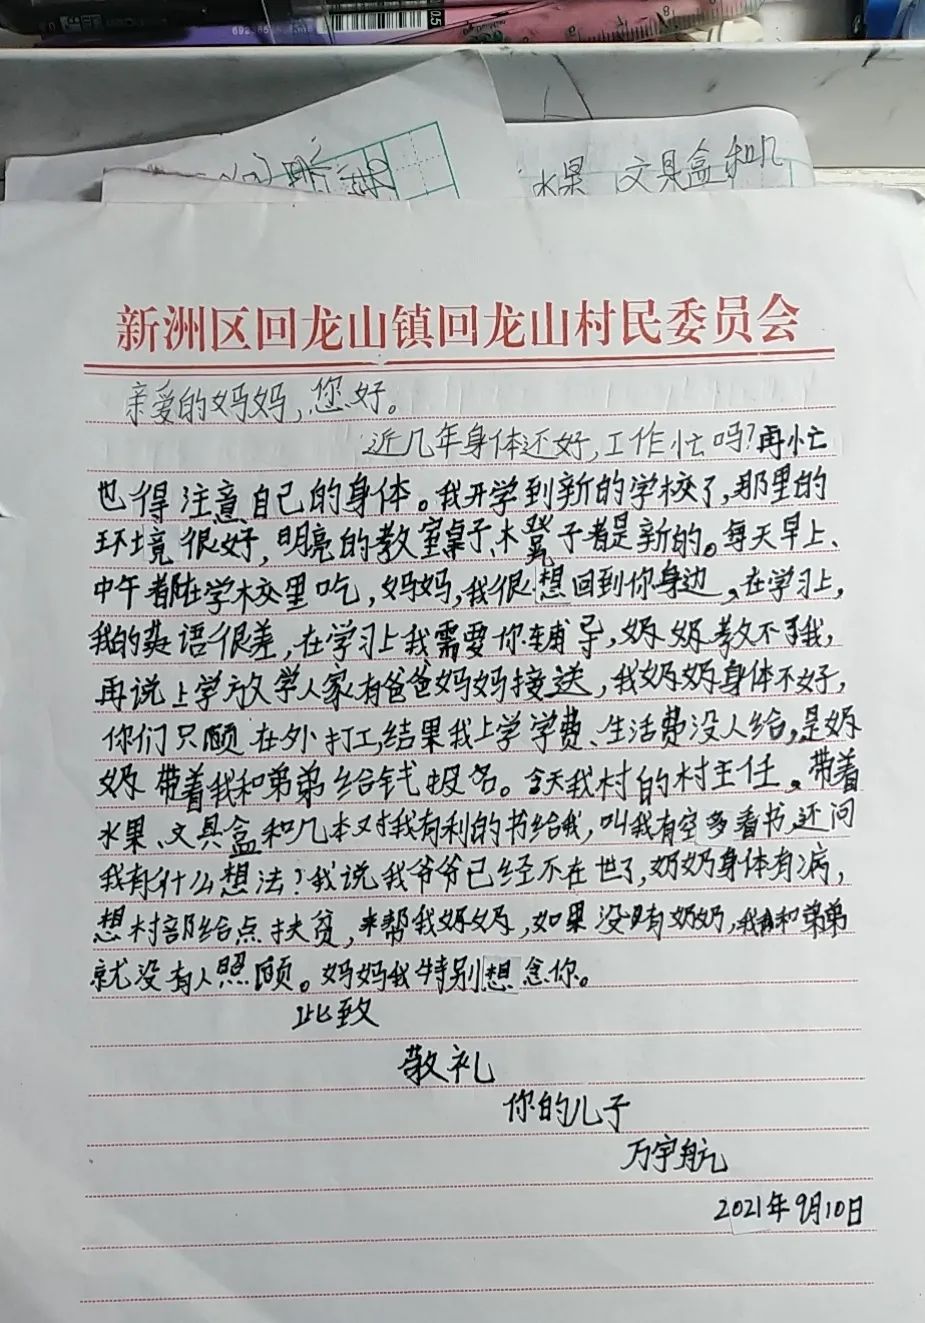 水果 文具盒和几
新洲区回龙山镇回龙山村民委员会
亲爱的妈妈,您好。
近几年身体还好,工作忙吗?再忙
也得注意自己的身体。我开学到新的学校了,那里的
环境很好,明亮的教室桌子、木凳子都是新的。每天早上、
中午都在学校里吃,妈妈,我很想回到你身边,在学习上,
我的英语很差,在学习上我需要你辅导,奶奶教不了我,
再说上学放学人家有爸爸妈妈接送,我奶奶身体不好,
你们只顾在外打工,结果我上学学费、生活费没人给,是奶
奶带着我和弟弟给钱报名。今天我村的村主任。带着
水果、文具盒和几本对我有利的书给我,叫我有空多看书,还问
我有什么想法?我说我爷爷已经不在世了,奶奶身体有病,
想村部给点扶贫,来帮我奶奶,如果没有奶奶,我和弟弟
就没有人照顾。妈妈我特别想念你。
此致
敬礼
你的儿子
万宇航
2021年9月10日